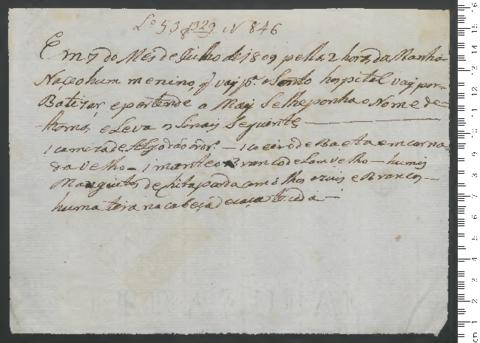 Lo 53 f329 N 846
Em 7 do Mes de Julho de 1809 pella 2 hora da Manhã
Naçeo hum menino, q vaj pª o Santo hospital vaj por
Batizar, e pertende a Maj Se lhe ponha o Nome de
thome, e Leva os Sinais Seguente
1 camiza de Algodão 1 coeiro de Baeta emcarna
da velho 1 manteo Branco de Lam velho huns
Manguitos de chita parda com olhos e Brancos
huma touca na cabeça de